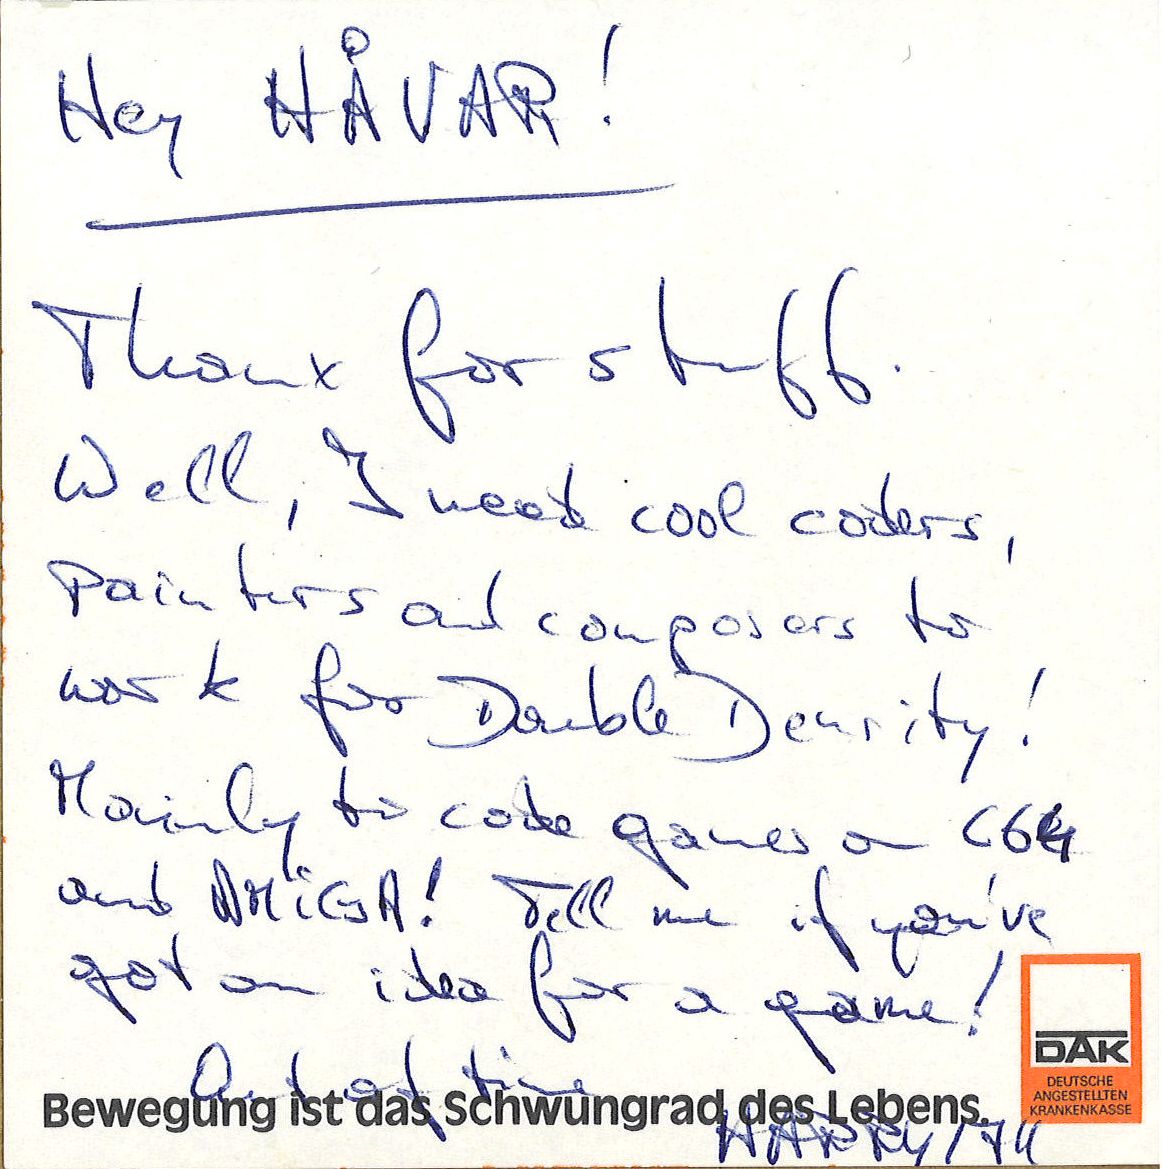 Hey HÅVAR!
Thanx for stuff.
Well, I need cool coders,
painters and composers to
work for Double Density!
Mainly to code games on C64
and AMiGA! Tell me if you've
got an idea for a game!
Out of time
Bewegung ist das Schwungrad des Lebens.
HARRY/
DAK
DEUTSCHE
ANGESTELLTEN
KRANKENKASSE